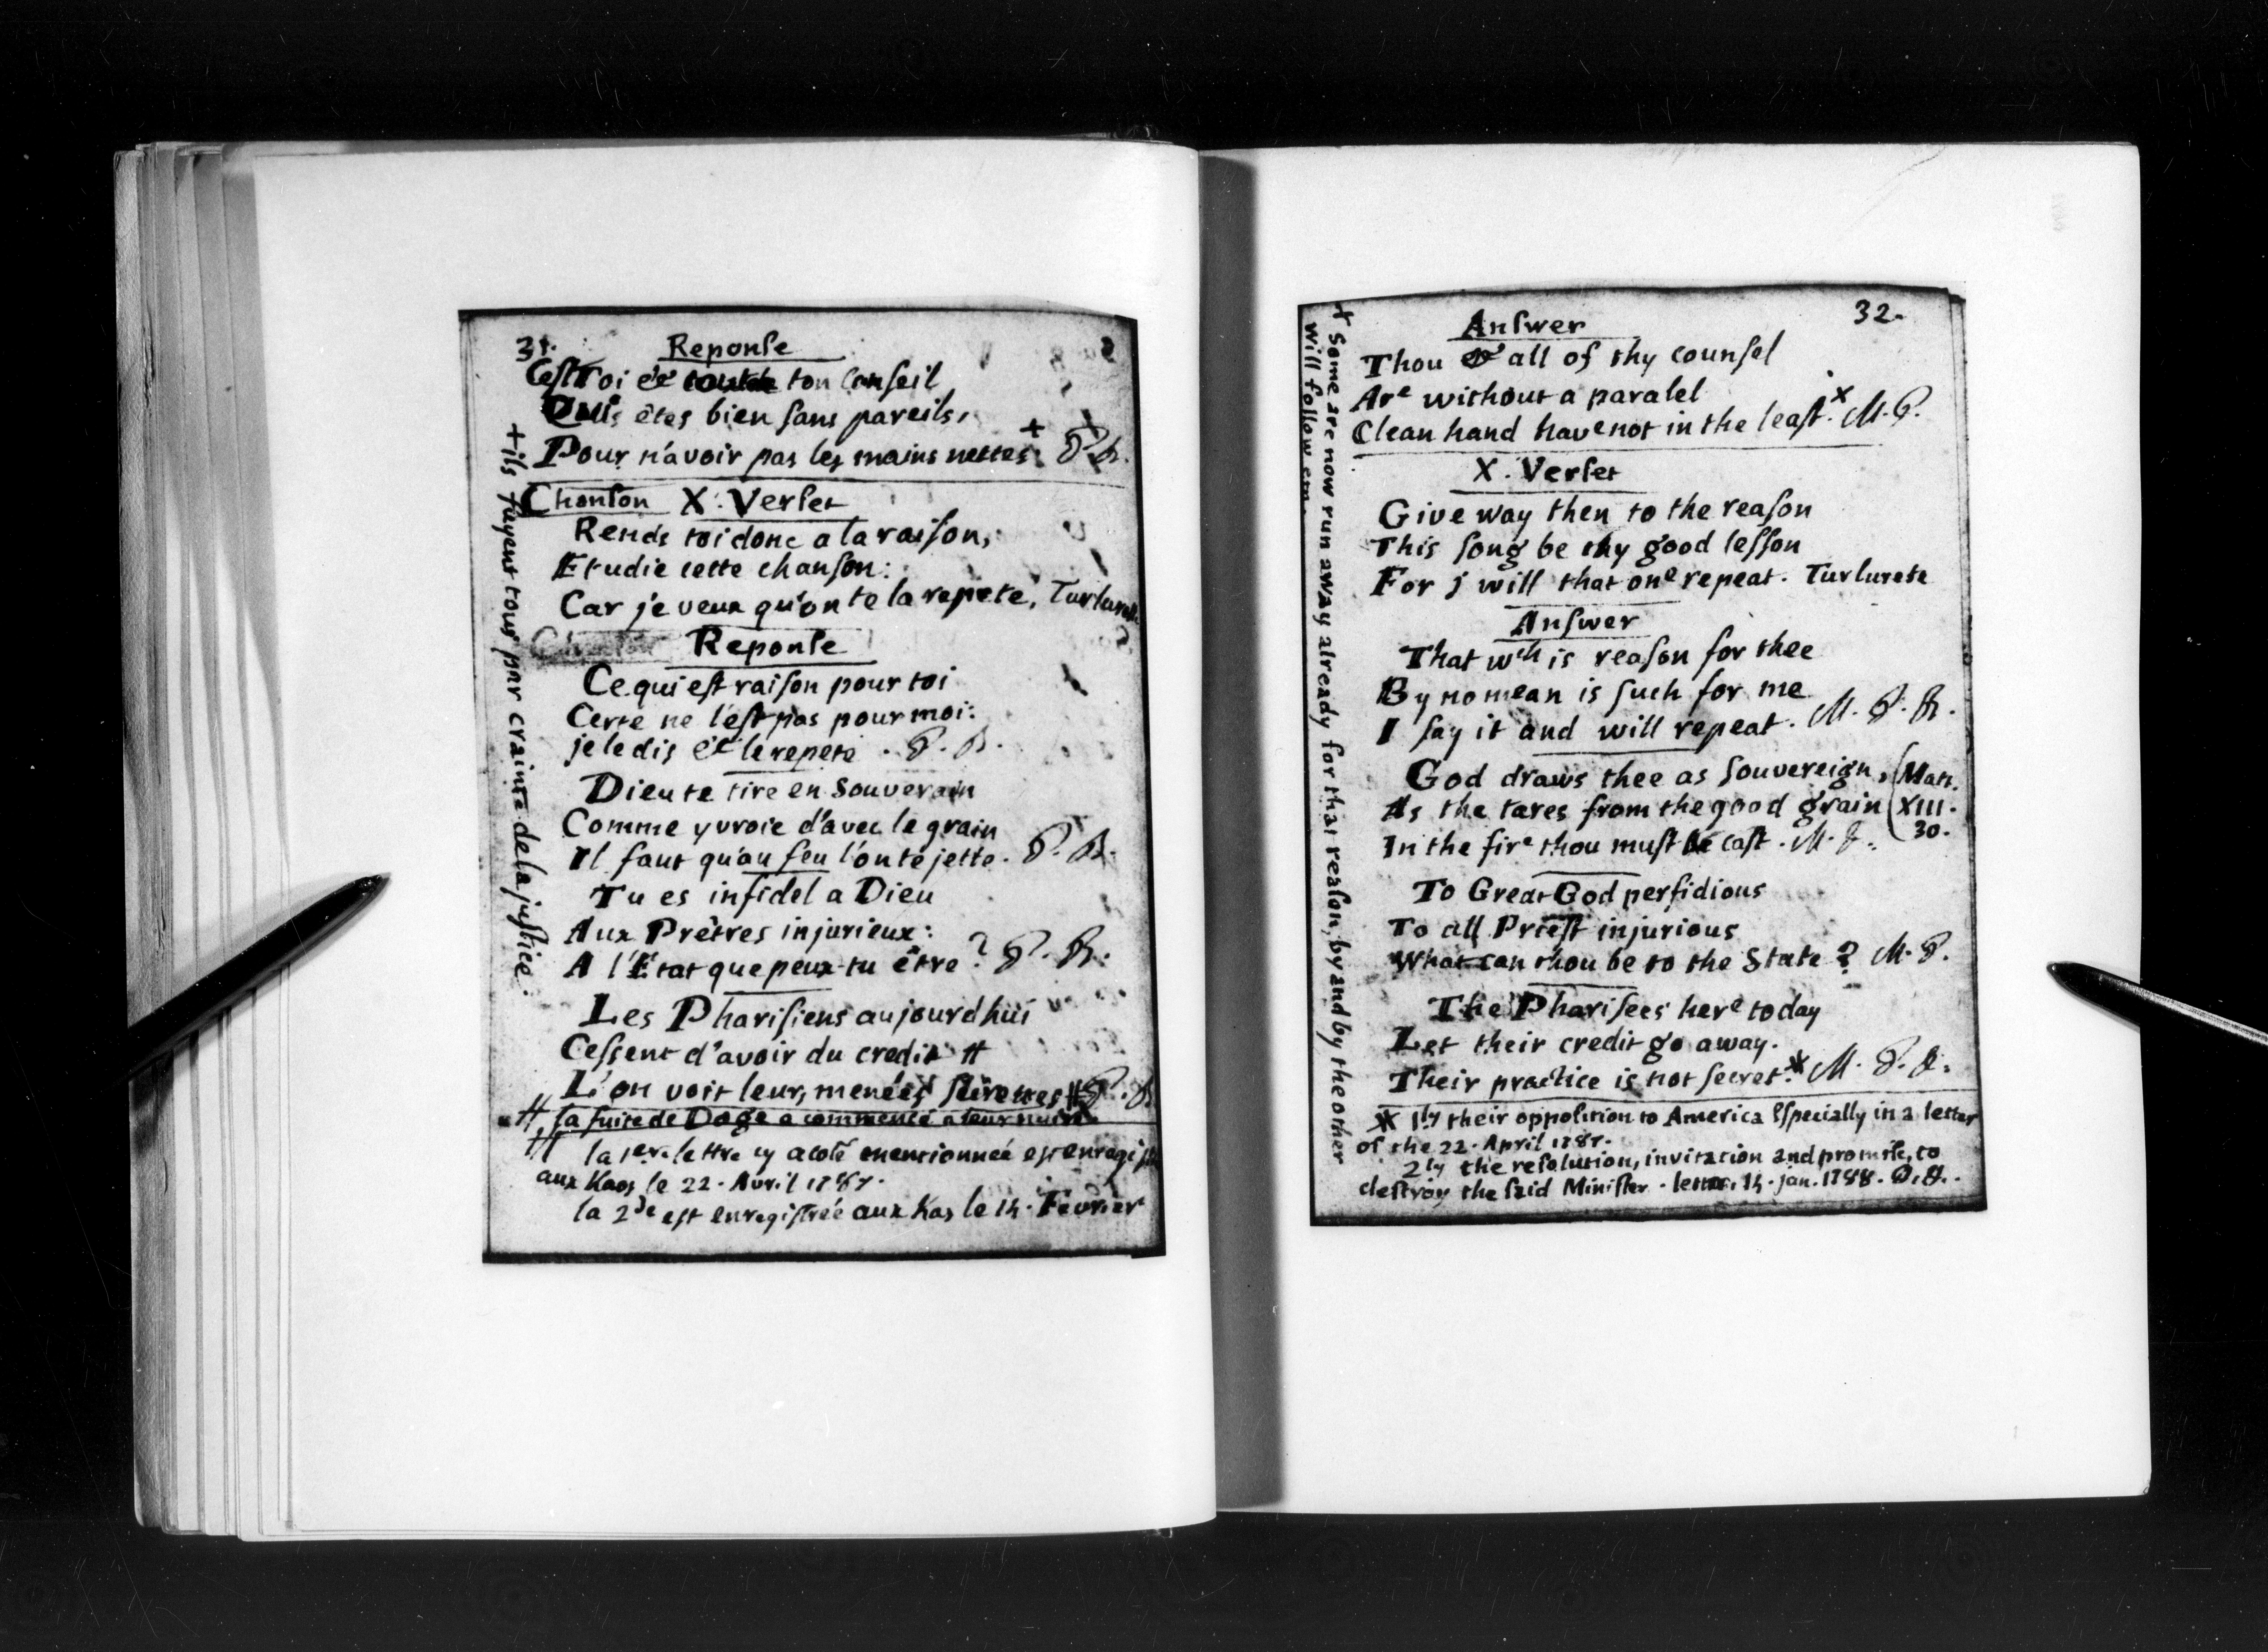 31.
Reponse
C'est Toi et ton Conseil
Qui êtes bien sans pareils,
Pour n'avoir pas les mains nettes + P. R.
Chanson X. Verset
Rends toi donc a la raison,
Etudie cette chanson:
Car je veux qu'on te la repete, Turlurette
Reponse
Ce qui est raison pour toi
Certe ne l'est pas pour moi:
je le dis et le repete. P. R.
Dieu te tire en Souverain
Comme yvroie d'avec le grain
Il faut qu'au feu l'on te jette. P. R.
Tu es infidel a Dieu
Aux Prêtres injurieux:
A l'Etat que peux-tu être? P. R.
Les Pharisiens aujourdhui
Cessent d'avoir du credit #
L'on voit leurs menées # P. R.
# la fuite de Doge a commencé a leur
# la 1ere lettre cy a coté mentionneé est enregis
aux Kaos le 22. Avril 1787.
la 2de est enregistreé aux Kas le 14. Fevrier
+ ils fuyent tous par crainte de la justice.
32.
Answer
Thou & all of thy counsel
Are without a paralel
Clean hand have not in the least. x M. P.
X. Verset
Give way then to the reason
This song be thy good lesson
For j will that one repeat. Turlurete
Answer
That wch is reason for thee
By no mean is such for me
I say it and will repeat. M. P. R.
God draws thee as souvereign, (Matt.
As the tares from the good grain (XIII.
In the fire thou must be cast. M. P. (30.
To Great God perfidious
To all Priest injurious
What can thou be to the State? M. P.
The Pharisees here today
Let their credit go away.
Their practice is not secret. * M. P. R.
* 1ly their opposition to America Especially in a letter
of the 22. April 1787.
2ly the resolution, invitation and promise, to
destroy the said Minister. letter, 14. jan. 1788.
x Some are now run away already for that reason, by and by the other
will follow em.